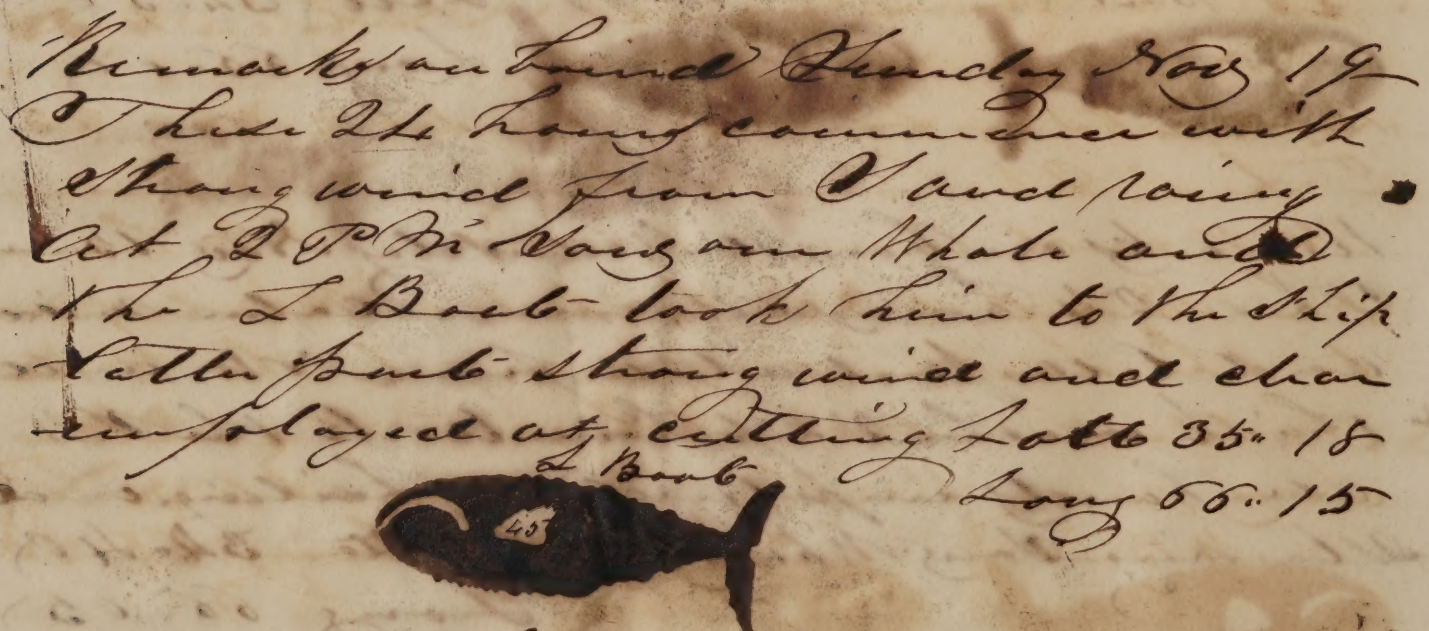 Remarks on bord Sunday Nov 19
These 24 hours commence with
strong wind from S and rainy
At 2 P M saw an Whale and
the L Boat took him to the Ship
latter part strong wind and clear
employed at cutting Latt 35" 18
L Boat Long 66" 15
45